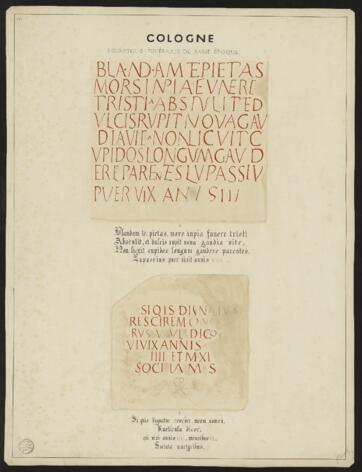 COLOGNE
INSCRIPTIONS FUNÉRAIRES DE BASSE ÉPOQUE
BLANDAM TE PIETAS
MORS INPIA FVNERE
TRISTI ABSTVLIT ED
VLCIS RVPIT NOVA GAV
DIA VITE NON LICVIT C
VPIDOS LONGVM GAVD
ERE PARENTES LVPASSIV
PVER VIX AN SIII
Blandam te, pietas, mors inpia funere tristi
Abstulit, et dulcis rupit nova gaudia vite,
Non licuit cupidos longum gaudere parentes.
Lupassius puer vixit annis
SIQIS DIGN
RESCIREM
RVS DICO
VIVIX ANNIS
IIII ET M XI
SOCIA M S
Si quis dignatur rescire meum nomen,
Rusticula dicor,
qui vixi annis mensibus
Sociata martyribus.